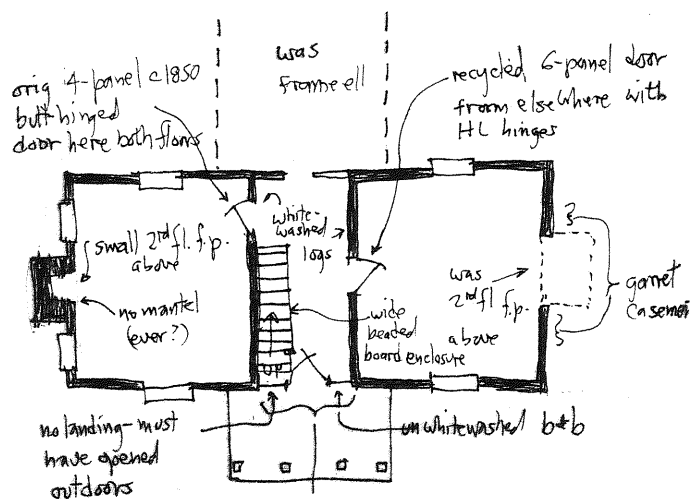 was
frame ell
orig 4-panel c1850
butt hinged
door here both floors
recycled 6-panel door
from elsewhere with
HL hinges
white-
washed
logs
small 2nd fl. f.p.
above
no mantel
(ever?)
was
2nd fl f.p.
above
garret
casemen
wide
beaded
board enclosure
UP
no landing - must
have opened
outdoors
unwhitewashed b+b